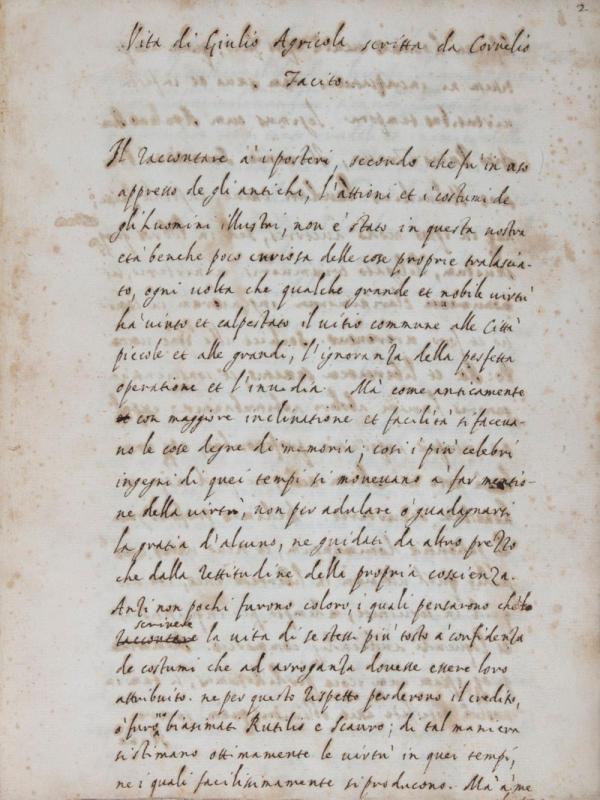 2
Vita di Giulio Agricola scritta da Cornelio
Tacito
Il raccontare à i posteri, secondo che fù in uso
appresso de gli antichi, l'attioni et i costumi de
gli huomini illustri, non è stato in questa nostra
età benche poco curiosa delle cose proprie tralascia-
to, ogni volta che qualche grande et nobile virtù
hà vinto et calpestato il vitio commune alle Città
piccole et alle grandi, l'ignoranza della perfetta
operatione et l'invidia. Mà come anticamente
con maggiore inclinatione et facilità si faceva-
no le cose degne di memoria; così i più celebri
ingegni di quei tempi si movevano a far mentio-
ne della virtù, non per adulare ò guadagnarsi
la gratia d'alcuno, ne guidati da altro prezzo
che dalla rettitudine della propria coscienza.
Anzi non pochi furono coloro, i quali pensarono che'lo
scrivere
raccontare la vita di se stessi più tosto a confidenza
de costumi che ad arroganza dovesse essere loro
attribuito. ne per questo rispetto perderono il credito,
ò furno biasimati Rutilio e Scauro; di tal maniera
si stimano ottimamente le virtù in quei tempi,
ne i quali facilissimamente si producono. Mà à me